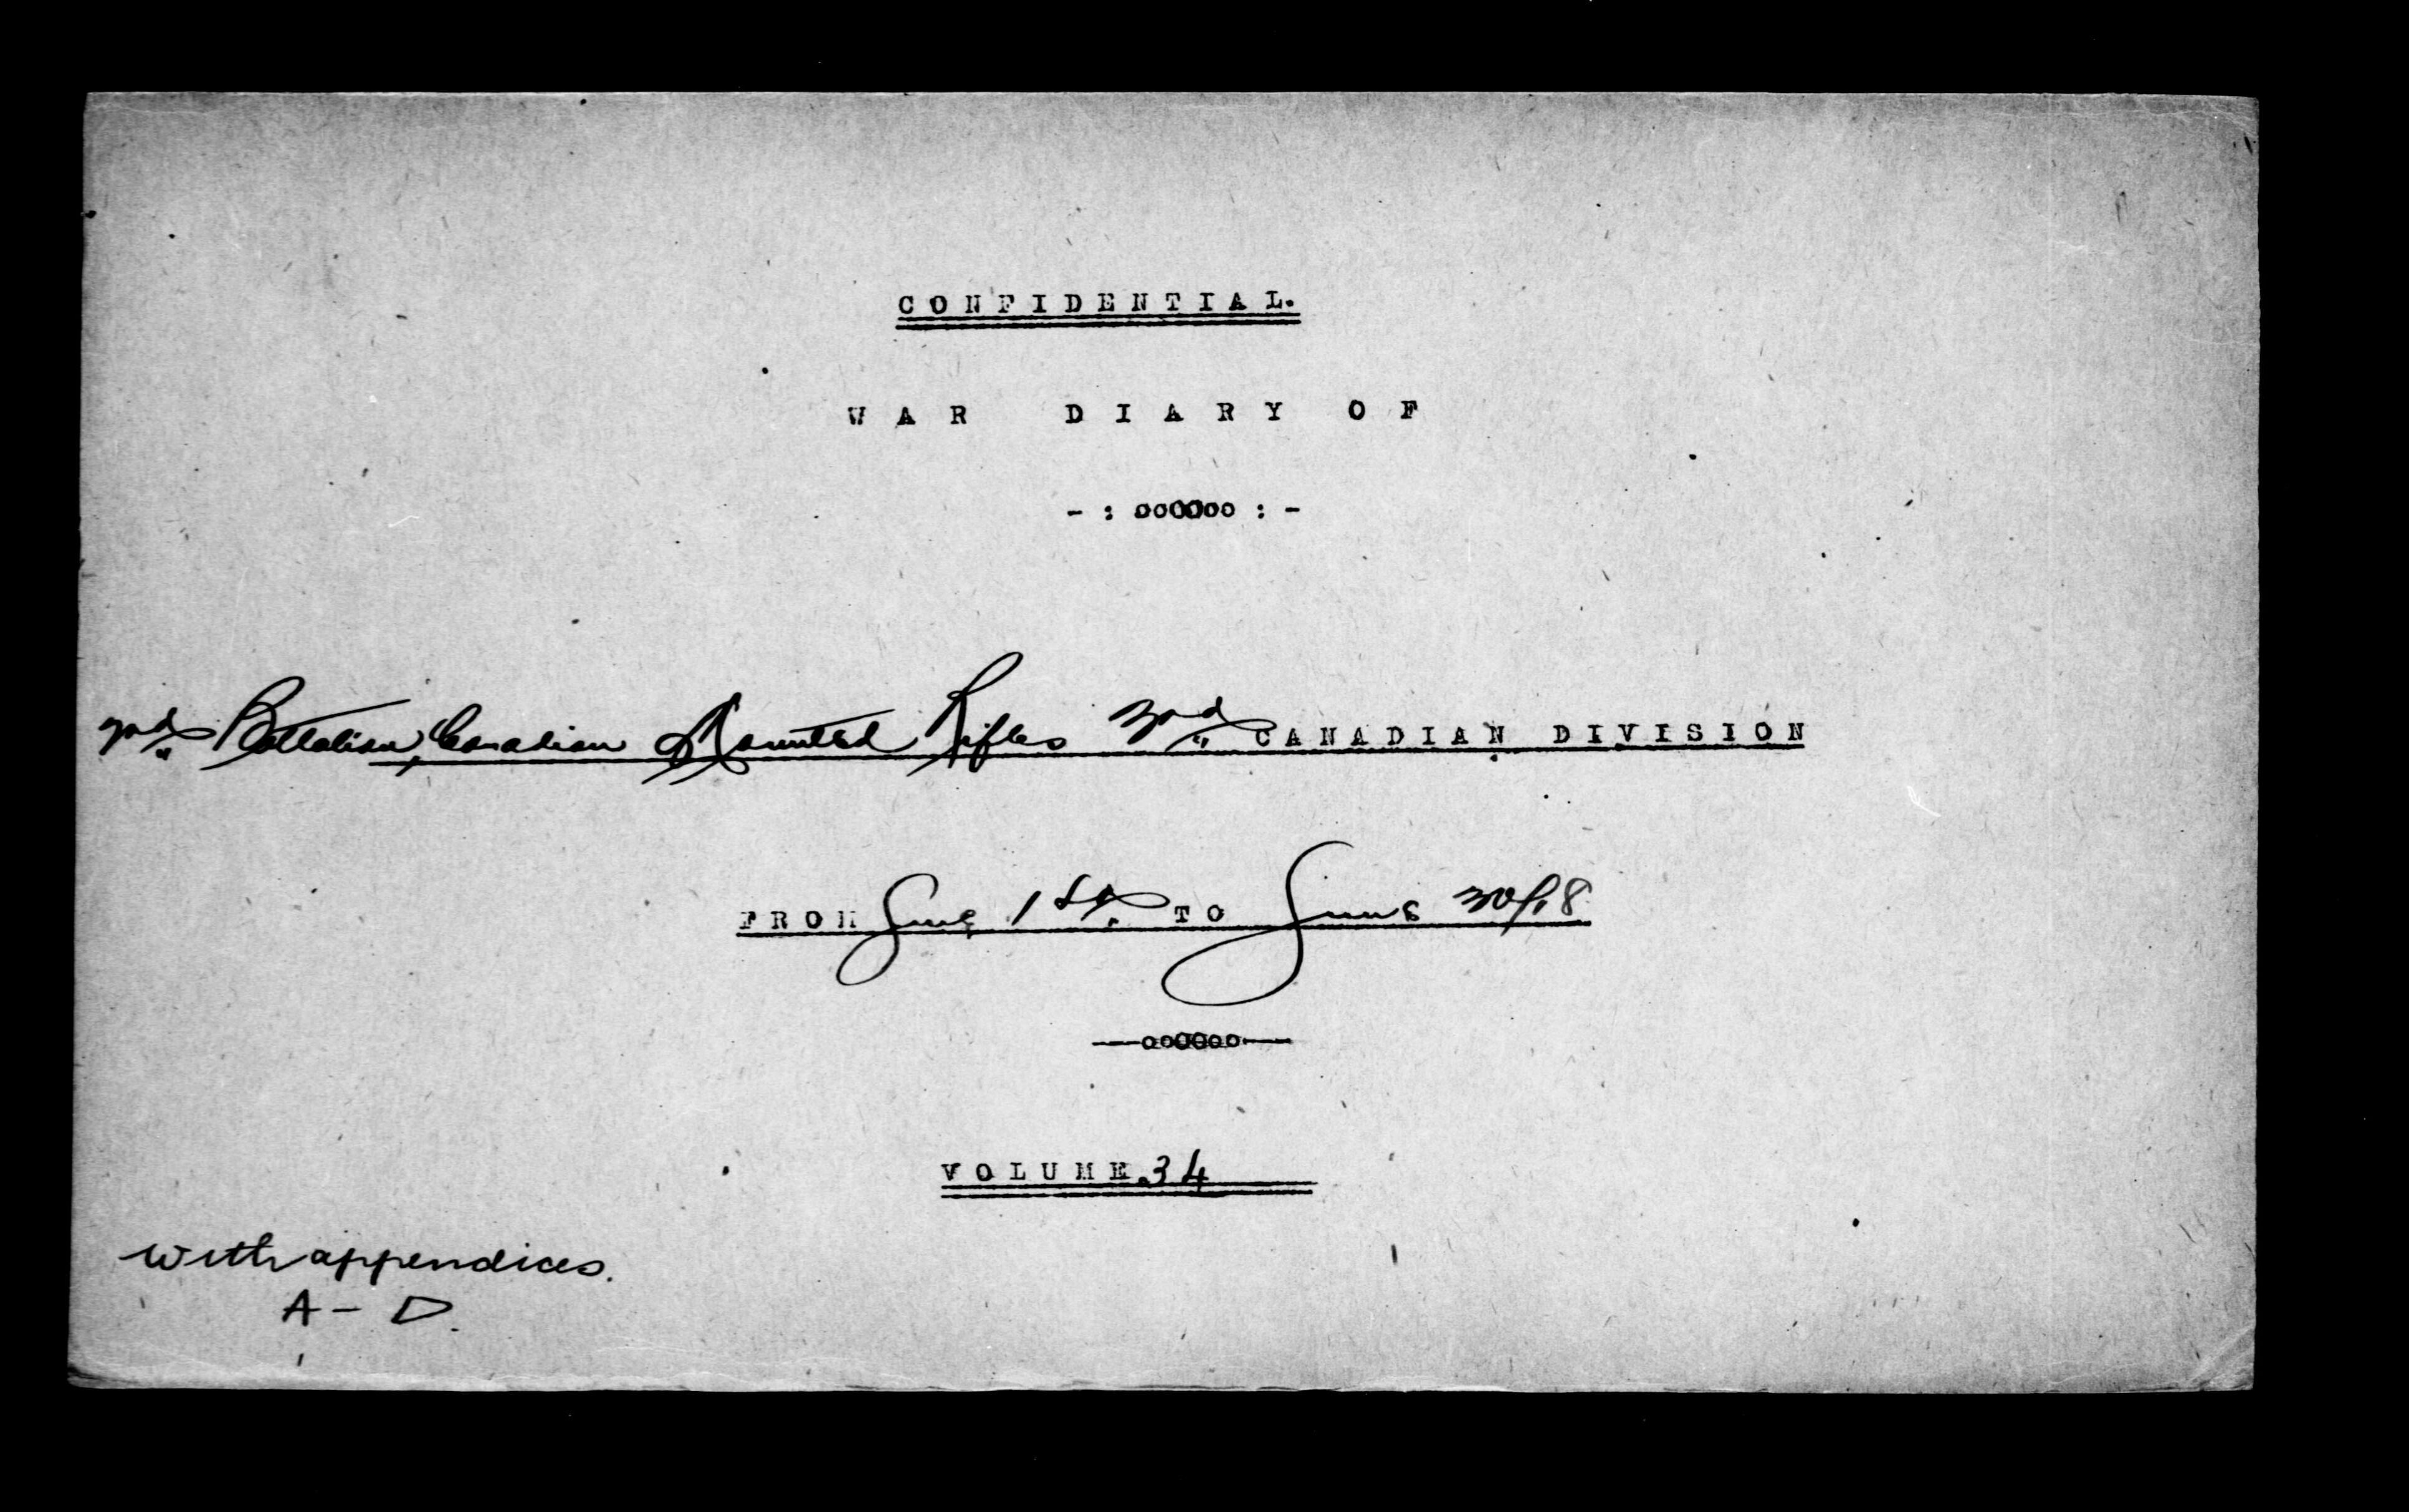 CONFIDENTIAL.
WAR DIARY OF
- : ooOOoo : -
2nd Battalion, Canadian Mounted Rifles 3rd CANADIAN DIVISION
FROM June 1st TO June 30/18
—ooOOoo—
VOLUME 34
with appendices.
A - D.